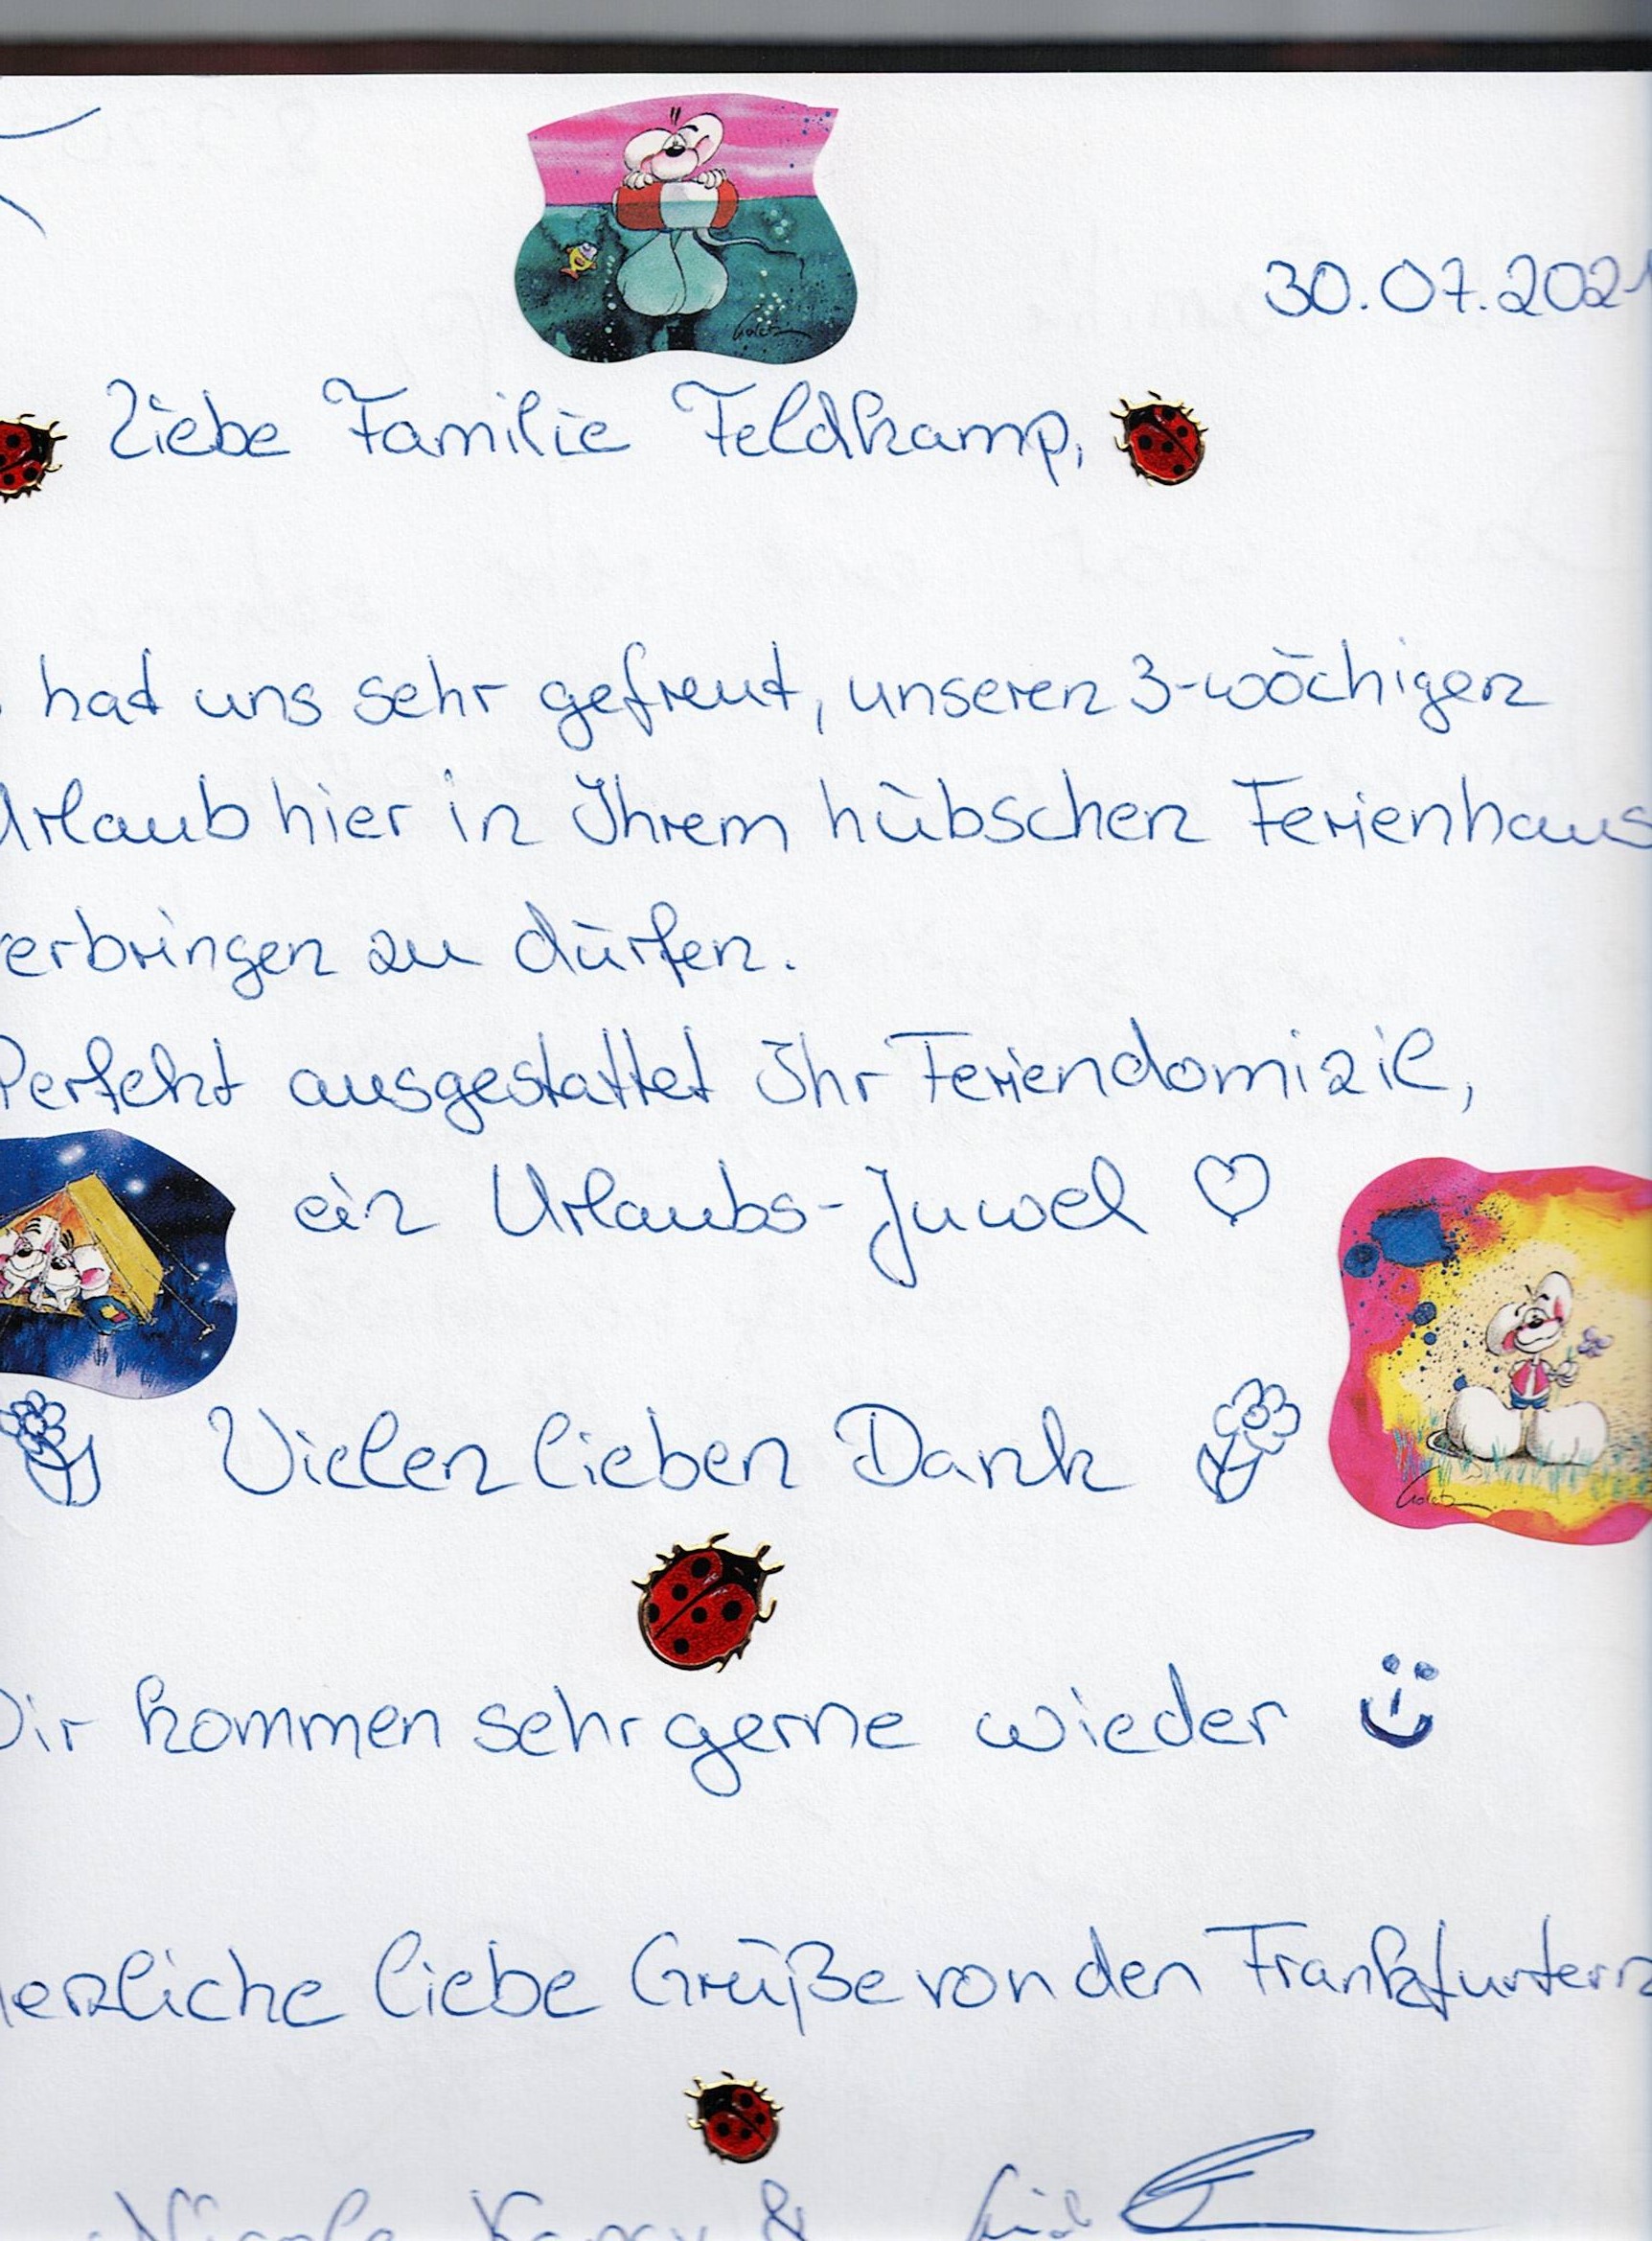 30.07.2021
Liebe Familie Feldkamp,
hat uns sehr gefreut, unseren 3-wöchigen
Urlaub hier in Ihrem hübschen Ferienhaus
verbringen zu dürfen.
Perfekt ausgestattet Ihr Feriendomizil,
ein Urlaubs-Juwel ♡
Vielen lieben Dank
Wir kommen sehr gerne wieder
Herzliche liebe Grüße von den Frankfurtern
Nicole &